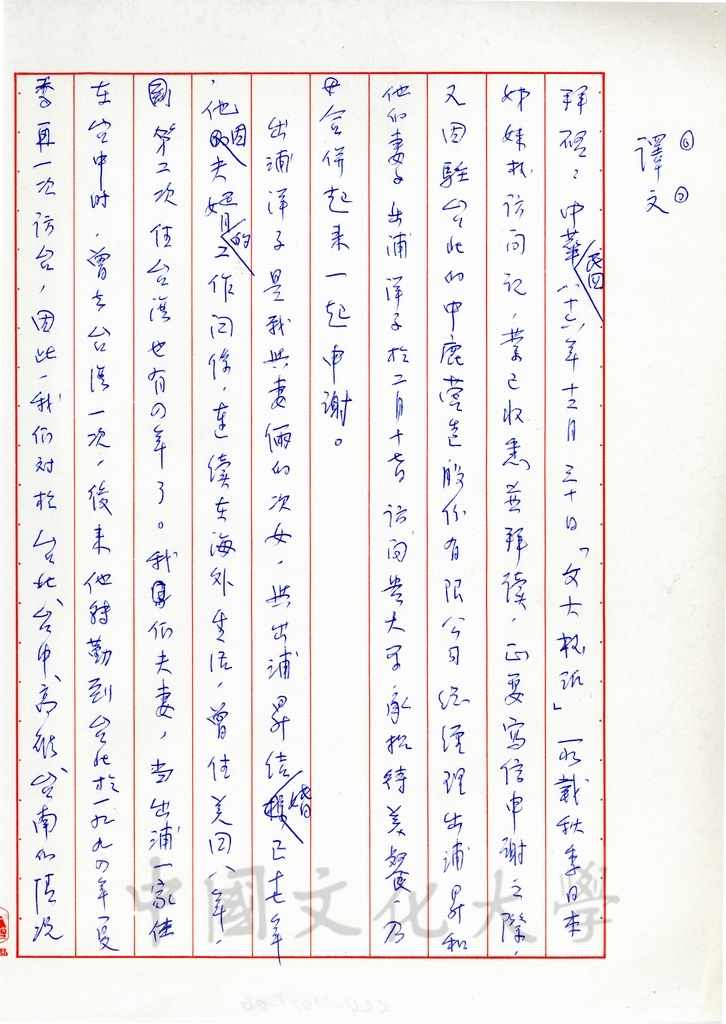 譯文
拜啓:中華民國八十六年十二月三十日「文大校訊」一所載秋季日本
姊妹校訪問記,業已收悉並拜讀,正要寫信申謝之際,
又因駐台北的中鹿營造股份有限公司總經理出浦昇和
他的妻子出浦洋子於二月十七日訪問貴大學,承招待美餐,乃
合併起來一起申謝。
出浦洋子是我與妻倆的次女,與出浦昇結婚已十七年
,他因夫婿的工作関係,連續在海外生活,曾住美国八年,
第二次住台湾也有四年了。我们夫妻,当出浦一家住
在台中时,曾去台湾一次,後来他转勤到台北於一九九四年夏
季再一次访台,因此,我们对於台北、台中、高雄、台南的情况
中國文化大學